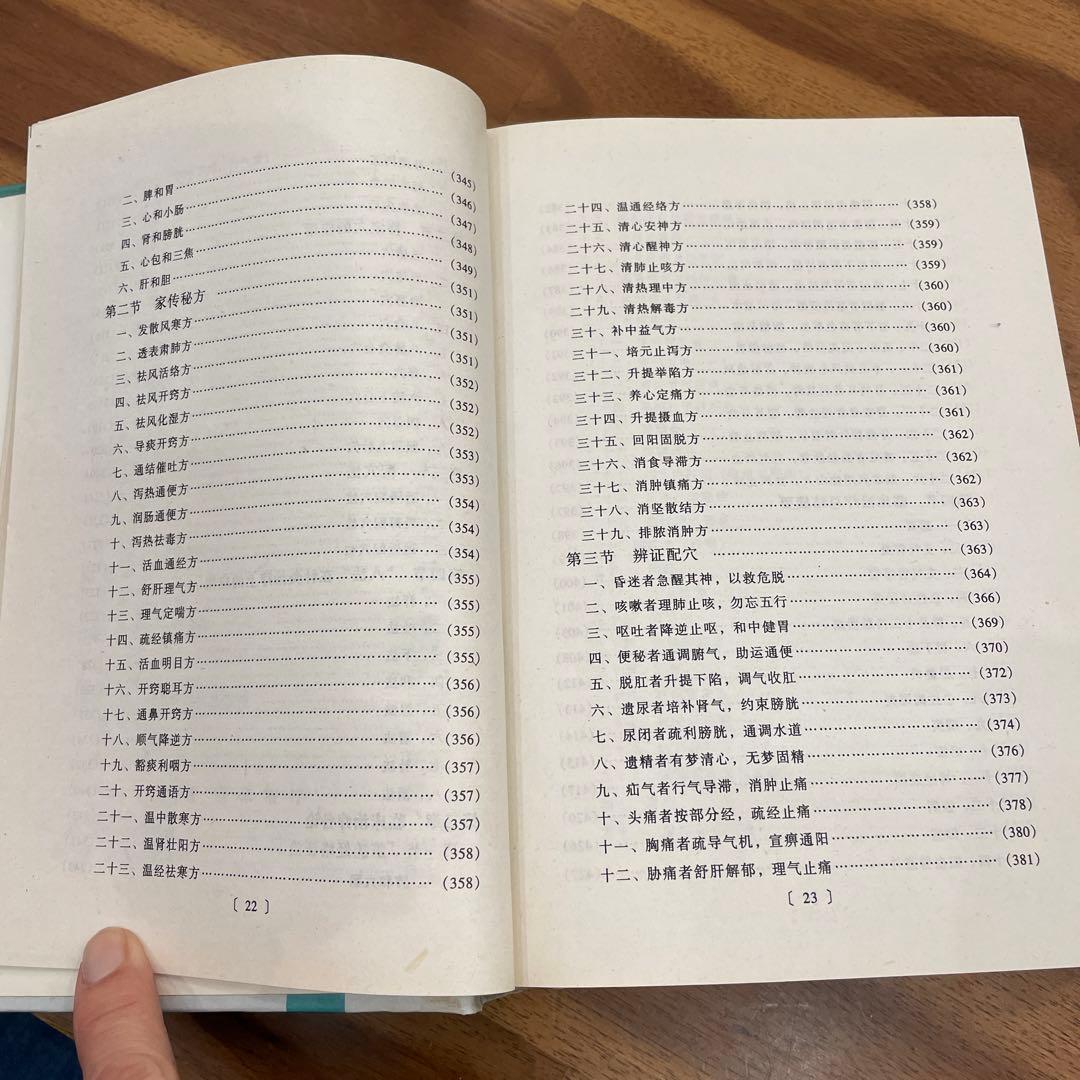 二、脾和胃……(345)
三、心和小肠……(346)
四、肾和膀胱……(347)
五、心包和三焦……(348)
六、肝和胆……(349)
第二节 家传秘方……(351)
一、发散风寒方……(351)
二、透表肃肺方……(351)
三、祛风活络方……(351)
四、祛风开窍方……(352)
五、祛风化湿方……(352)
六、导痰开窍方……(352)
七、通结催吐方……(353)
八、泻热通便方……(353)
九、润肠通便方……(354)
十、泻热祛毒方……(354)
十一、活血通经方……(354)
十二、舒肝理气方……(355)
十三、理气定喘方……(355)
十四、疏经镇痛方……(355)
十五、活血明目方……(355)
十六、开窍聪耳方……(356)
十七、通鼻开窍方……(356)
十八、顺气降逆方……(356)
十九、豁痰利咽方……(357)
二十、开窍通语方……(357)
二十一、温中散寒方……(357)
二十二、温肾壮阳方……(358)
二十三、温经祛寒方……(358)
〔 22 〕
二十四、温通经络方……(358)
二十五、清心安神方……(359)
二十六、清心醒神方……(359)
二十七、清肺止咳方……(359)
二十八、清热理中方……(360)
二十九、清热解毒方……(360)
三十、补中益气方……(360)
三十一、培元止泻方……(360)
三十二、升提举陷方……(361)
三十三、养心定痛方……(361)
三十四、升提摄血方……(361)
三十五、回阳固脱方……(362)
三十六、消食导滞方……(362)
三十七、消肿镇痛方……(362)
三十八、消坚散结方……(363)
三十九、排脓消肿方……(363)
第三节 辨证配穴……(363)
一、昏迷者急醒其神，以救危脱……(364)
二、咳嗽者理肺止咳，勿忘五行……(366)
三、呕吐者降逆止呕，和中健胃……(369)
四、便秘者通调腑气，助运通便……(370)
五、脱肛者升提下陷，调气收肛……(372)
六、遗尿者培补肾气，约束膀胱……(373)
七、尿闭者疏利膀胱，通调水道……(374)
八、遗精者有梦清心，无梦固精……(376)
九、疝气者行气导滞，消肿止痛……(377)
十、头痛者按部分经，疏经止痛……(378)
十一、胸痛者疏导气机，宣痹通阳……(380)
十二、胁痛者舒肝解郁，理气止痛……(381)
〔 23 〕